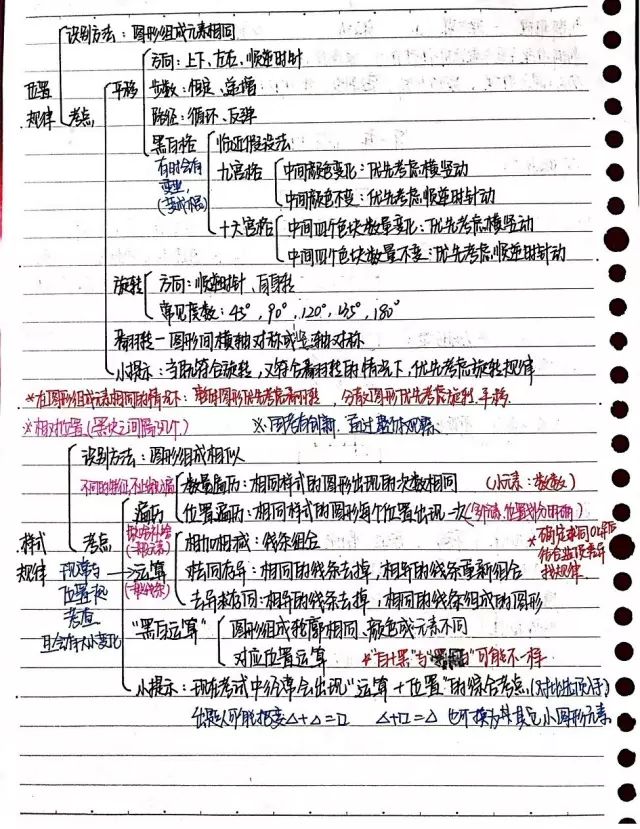 识别方法：图形组成元素相同
位置规律
考点
平移
方向：上下、左右、顺逆时针
步数：恒定、递增
路径：循环、反弹
黑白格
有时会有
变业,
临近假设法
九宫格
中间颜色变化：优先考虑横竖动
中间颜色不变：优先考虑顺逆时针动
十六宫格
中间四个色块数量变化：优先考虑横竖动
中间四个色块数量不变：优先考虑顺逆时针动
旋转
方向：顺逆时针、自身转
常见度数：45°，90°，120°，135°，180°
翻转—图形间横轴对称或竖轴对称
小提示：当既符合旋转，又符合翻转的情况下，优先考虑旋转规律
*在图形组成元素相同的情况下：整体图形优先考虑翻转，分散图形优先考虑旋转、平移
※相对位置(黑块之间隔几个) ※国考有创新 通过整体观察
样式规律
识别方法：图形组成相似
考点
遍历
数量遍历：相同样式的图形出现的次数相同 (小元素：数数)
位置遍历：相同样式的图形每个位置出现一次
现常与
位置规
考查
且会有大小变化
运算
相加相减：线条组合
去同存异：相同的线条去掉，相异的线条重新组合
去异存同：相异的线条去掉，相同的线条组成的图形
*确定求同or求异
结合选项差异
找规律
"黑白运算"
图形组成轮廓相同、颜色或元素不同
对应位置运算 *"白+黑"与"黑+白"可能不一样
小提示：现在考试中经常会出现"运算+位置"的综合考点.
出题人可能把变△+△=□ △+□=△ 也可换为其它小图形元素